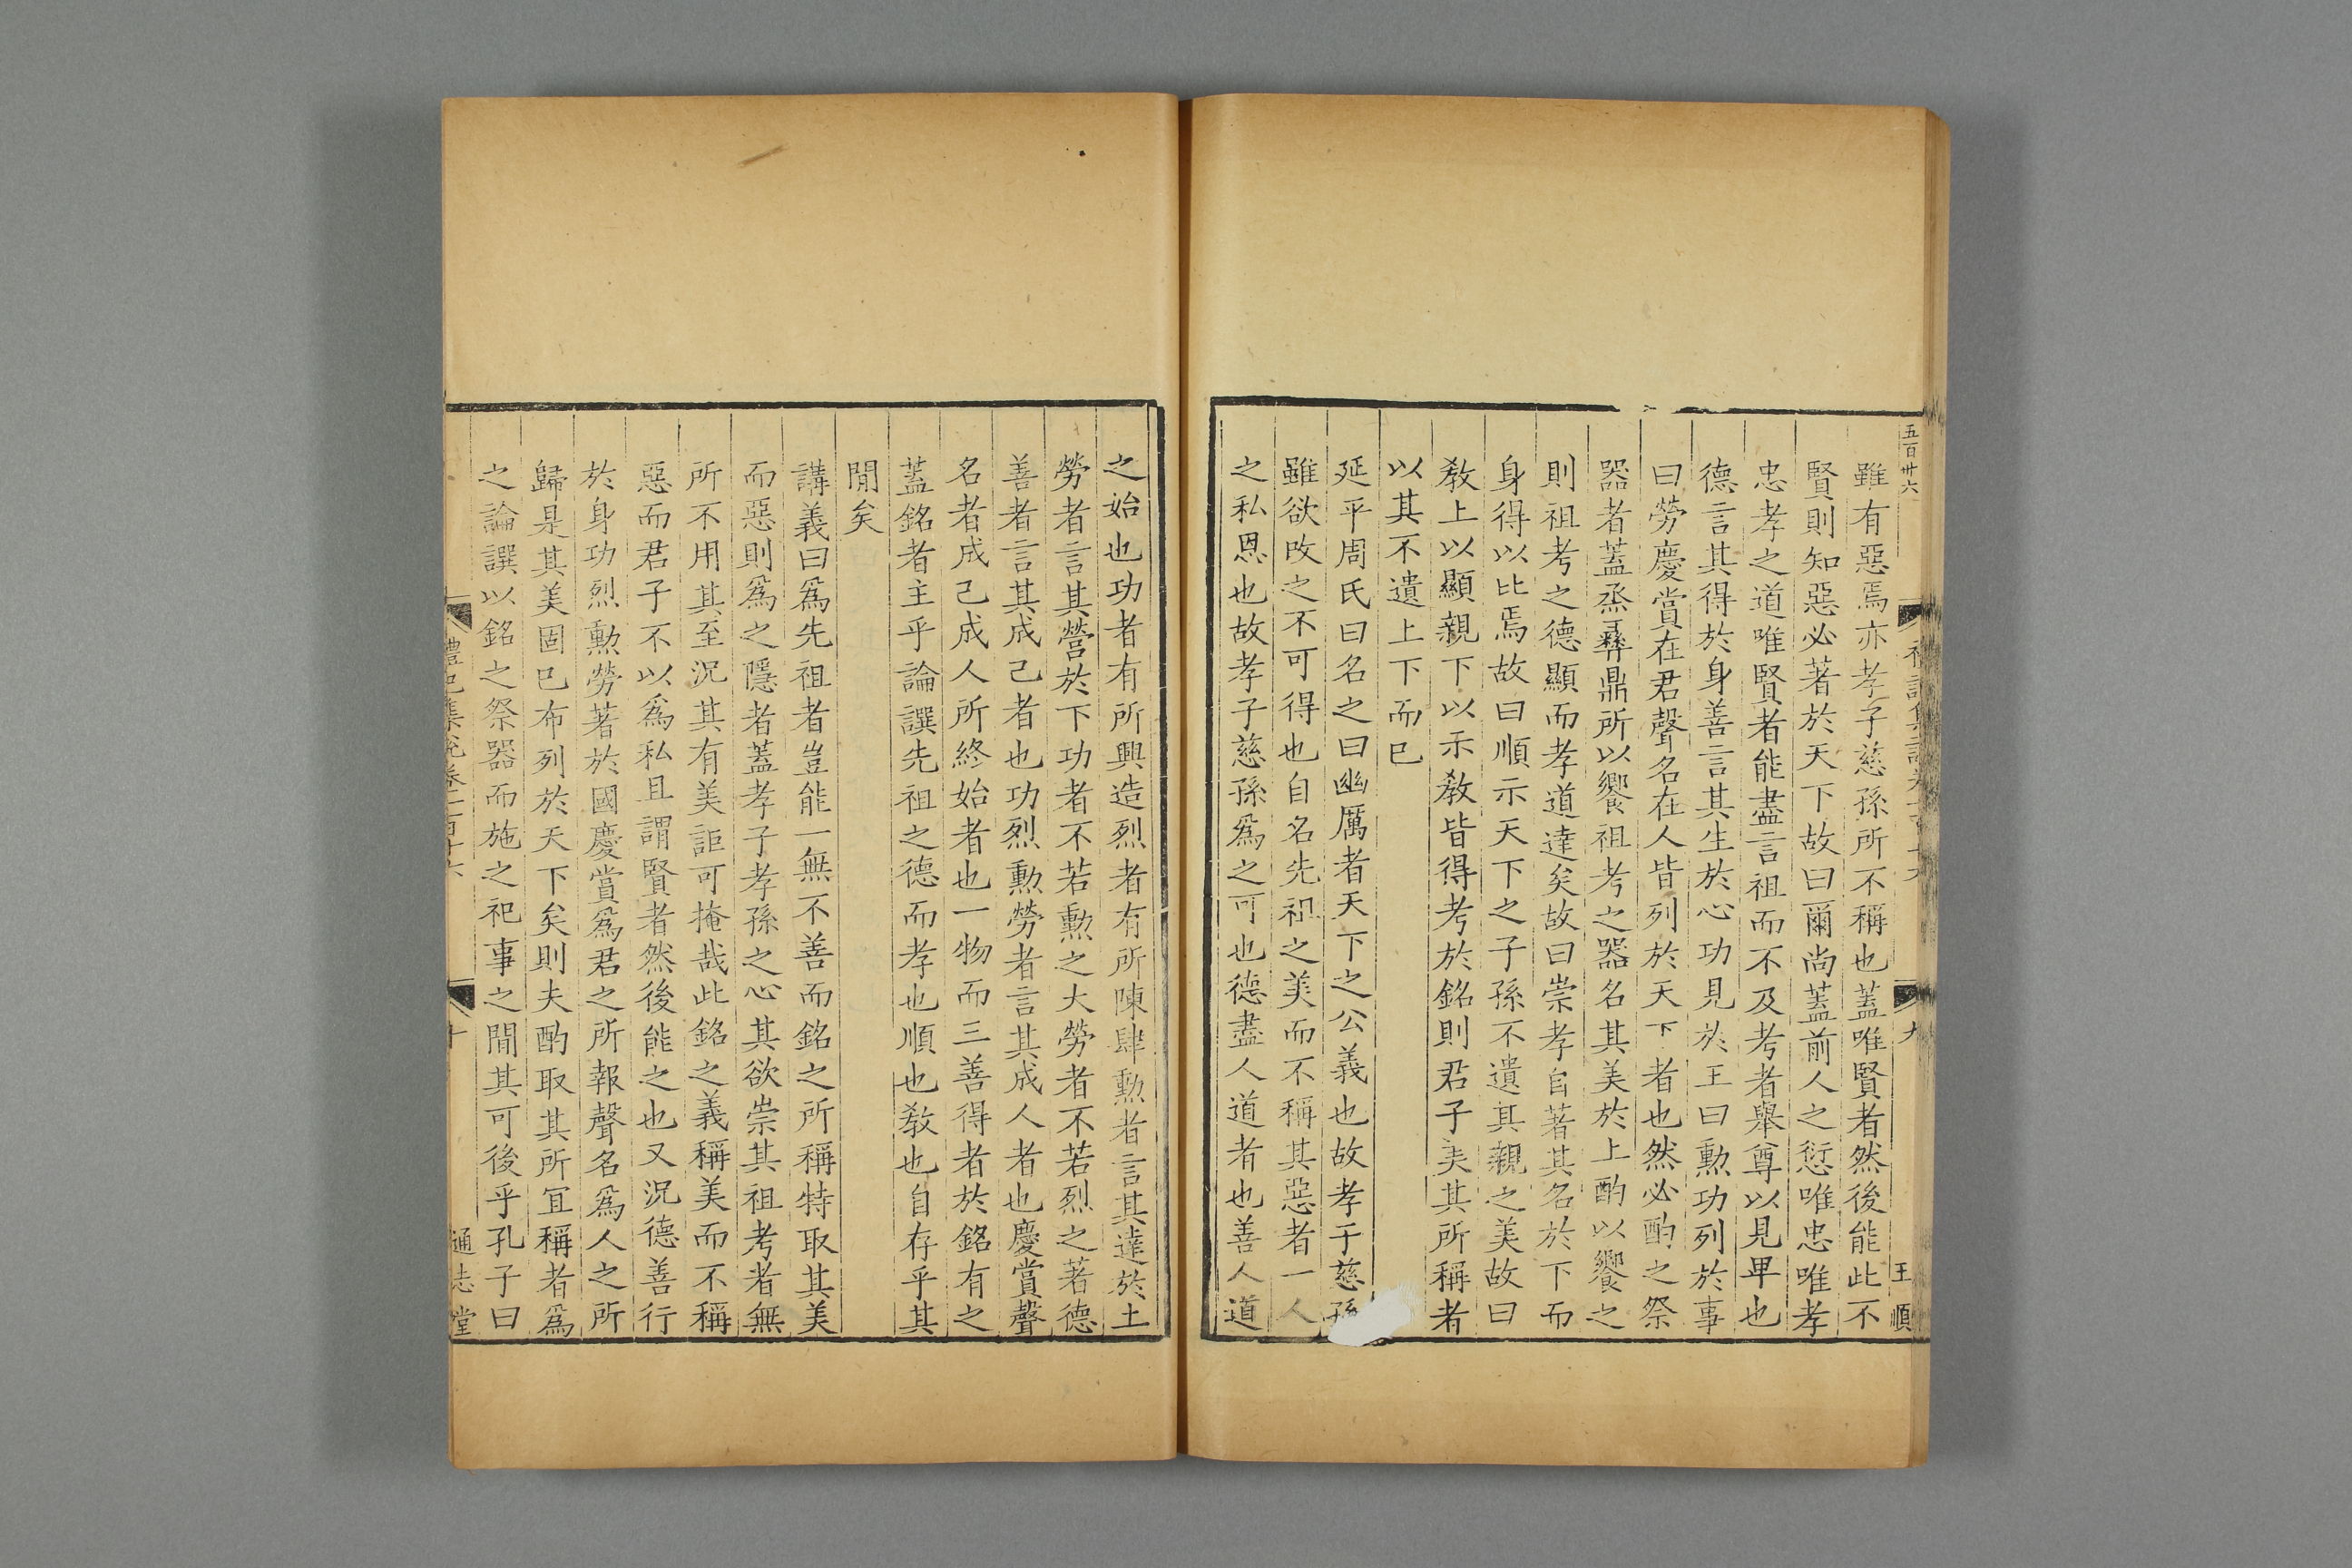 五百卅六
王順
九
雖有惡焉亦孝子慈孫所不稱也蓋唯賢者然後能此不
賢則知惡必著於天下故曰爾尚蓋前人之愆唯忠唯孝
忠孝之道唯賢者能盡言祖而不及考者舉尊以見卑也
德言其得於身善言其生於心功見於王曰勳功列於事
曰勞慶賞在君聲名在人皆列於天下者也然必酌之祭
器者蓋烝彝鼎所以饗祖考之器名其美於上酌以饗之
則祖考之德顯而孝道達矣故曰崇孝自著其名於下而
身得以比焉故曰順示天下之子孫不遺其親之美故曰
敎上以顯親下以示敎皆得考於銘則君子美其所稱者
以其不遺上下而已
延平周氏曰名之曰幽厲者天下之公義也故孝子慈孫
雖欲改之不可得也自名先祖之美而不稱其惡者一人
之私恩也故孝子慈孫爲之可也德盡人道者也善人道
之始也功者有所興造烈者有所陳肆勳者言其達於土
勞者言其營於下功者不若勳之大勞者不若烈之著德
善者言其成己者也功烈勳勞者言其成人者也慶賞聲
名者成己成人所終始者也一物而三善得者於銘有之
蓋銘者主乎論譔先祖之德而孝也順也敎也自存乎其
閒矣
講義曰爲先祖者豈能一無不善而銘之所稱特取其美
而惡則爲之隱者蓋孝子孝孫之心其欲崇其祖考者無
所不用其至況其有美詎可掩哉此銘之義稱美而不稱
惡而君子不以爲私且謂賢者然後能之也又況德善行
於身功烈勳勞著於國慶賞爲君之所報聲名爲人之所
歸是其美固已布列於天下矣則夫酌取其所宜稱者爲
之論譔以銘之祭器而施之祀事之閒其可後乎孔子曰
禮記集說卷一百十六
十
通志堂